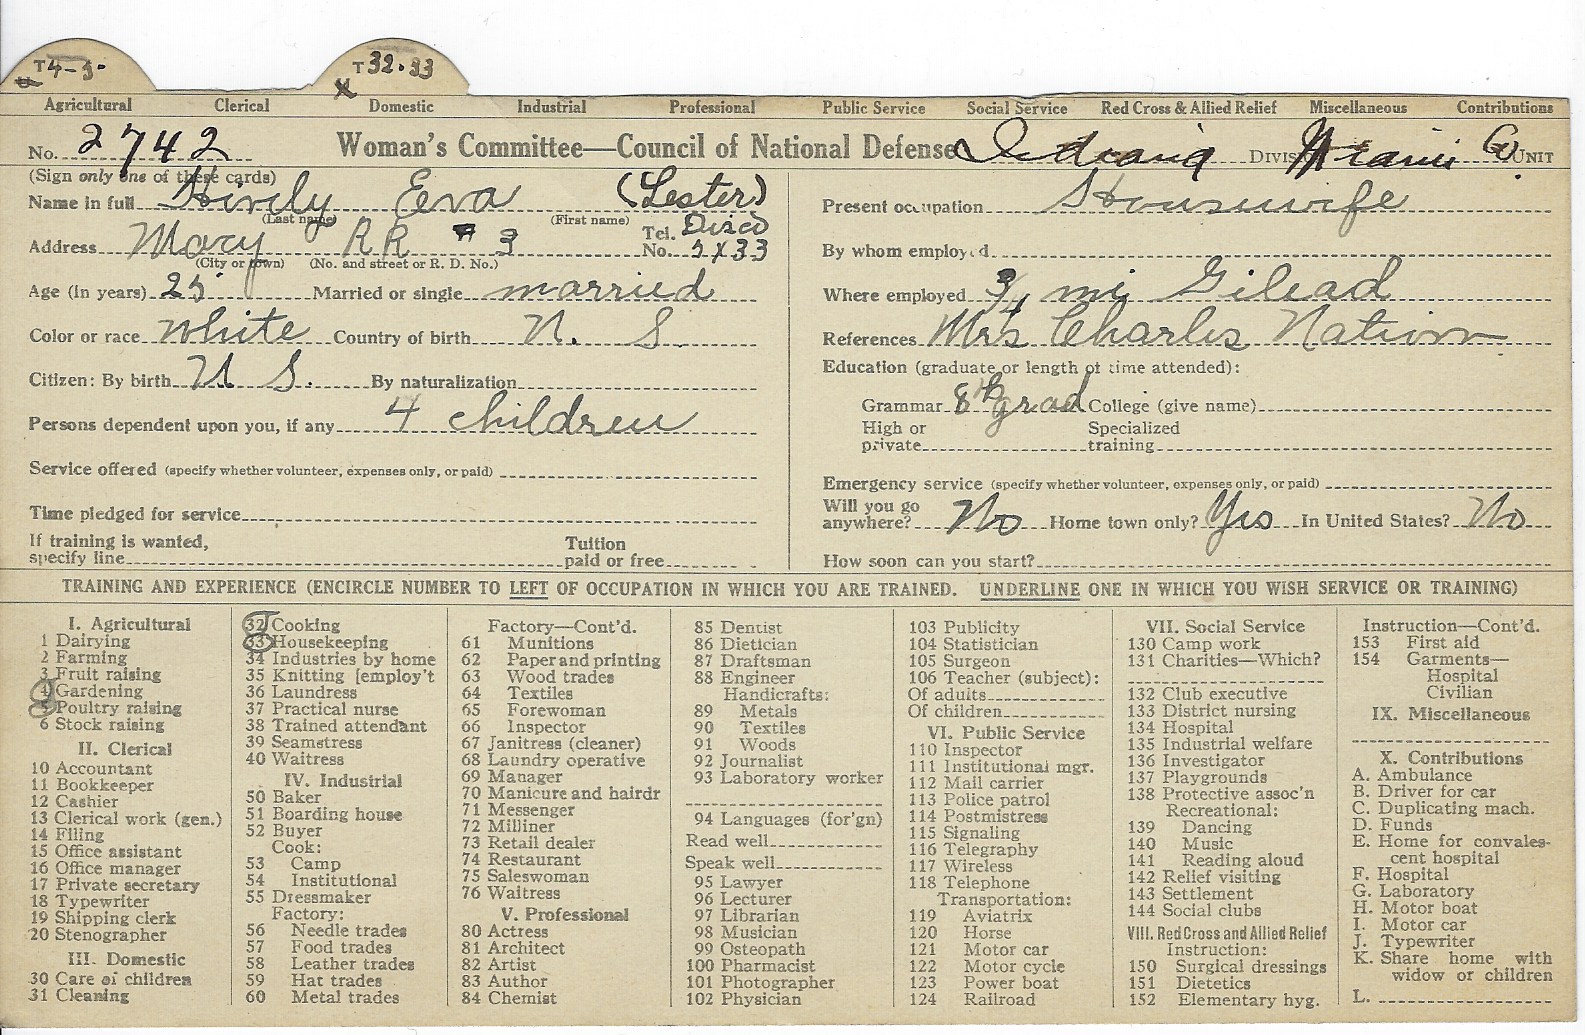 T4-5. T32.33
x
Agricultural Clerical Domestic Industrial Professional Public Service Social Service Red Cross & Allied Relief Miscellaneous Contributions
No. 2742 Woman's Committee—Council of National Defense Indiana DIVISION Miami Co. UNIT
(Sign only one of these cards)
Name in full Hively Eva (Lester)
(Last name) (First name)
Address Macy RR #3 Tel. No. Disco 5X33
(City or town) (No. and street or R. D. No.)
Age (in years) 25 Married or single married
Color or race White Country of birth U. S.
Citizen: By birth U S. By naturalization
Persons dependent upon you, if any 4 children
Service offered (specify whether volunteer, expenses only, or paid)
Time pledged for service
If training is wanted, specify line Tuition paid or free
Present occupation Housewife
By whom employed
Where employed 3/4 mi Gilead
References Mrs Charles Nation
Education (graduate or length of time attended):
Grammar 8th grad College (give name)
High or private Specialized training
Emergency service (specify whether volunteer, expenses only, or paid)
Will you go anywhere? No Home town only? Yes In United States? No
How soon can you start?
TRAINING AND EXPERIENCE (ENCIRCLE NUMBER TO LEFT OF OCCUPATION IN WHICH YOU ARE TRAINED. UNDERLINE ONE IN WHICH YOU WISH SERVICE OR TRAINING)
I. Agricultural
1 Dairying
2 Farming
3 Fruit raising
4 Gardening
5 Poultry raising
6 Stock raising
II. Clerical
10 Accountant
11 Bookkeeper
12 Cashier
13 Clerical work (gen.)
14 Filing
15 Office assistant
16 Office manager
17 Private secretary
18 Typewriter
19 Shipping clerk
20 Stenographer
III. Domestic
30 Care of children
31 Cleaning
32 Cooking
33 Housekeeping
34 Industries by home
35 Knitting [employ't
36 Laundress
37 Practical nurse
38 Trained attendant
39 Seamstress
40 Waitress
IV. Industrial
50 Baker
51 Boarding house
52 Buyer
Cook:
53 Camp
54 Institutional
55 Dressmaker
Factory:
56 Needle trades
57 Food trades
58 Leather trades
59 Hat trades
60 Metal trades
Factory—Cont'd.
61 Munitions
62 Paper and printing
63 Wood trades
64 Textiles
65 Forewoman
66 Inspector
67 Janitress (cleaner)
68 Laundry operative
69 Manager
70 Manicure and hairdr
71 Messenger
72 Milliner
73 Retail dealer
74 Restaurant
75 Saleswoman
76 Waitress
V. Professional
80 Actress
81 Architect
82 Artist
83 Author
84 Chemist
85 Dentist
86 Dietician
87 Draftsman
88 Engineer
Handicrafts:
89 Metals
90 Textiles
91 Woods
92 Journalist
93 Laboratory worker
94 Languages (for'gn)
Read well
Speak well
95 Lawyer
96 Lecturer
97 Librarian
98 Musician
99 Osteopath
100 Pharmacist
101 Photographer
102 Physician
103 Publicity
104 Statistician
105 Surgeon
106 Teacher (subject):
Of adults
Of children
VI. Public Service
110 Inspector
111 Institutional mgr.
112 Mail carrier
113 Police patrol
114 Postmistress
115 Signaling
116 Telegraphy
117 Wireless
118 Telephone
Transportation:
119 Aviatrix
120 Horse
121 Motor car
122 Motor cycle
123 Power boat
124 Railroad
VII. Social Service
130 Camp work
131 Charities—Which?
132 Club executive
133 District nursing
134 Hospital
135 Industrial welfare
136 Investigator
137 Playgrounds
138 Protective assoc'n
Recreational:
139 Dancing
140 Music
141 Reading aloud
142 Relief visiting
143 Settlement
144 Social clubs
VIII. Red Cross and Allied Relief
Instruction:
150 Surgical dressings
151 Dietetics
152 Elementary hyg.
Instruction—Cont'd.
153 First aid
154 Garments—
Hospital
Civilian
IX. Miscellaneous
X. Contributions
A. Ambulance
B. Driver for car
C. Duplicating mach.
D. Funds
E. Home for convales-
cent hospital
F. Hospital
G. Laboratory
H. Motor boat
I. Motor car
J. Typewriter
K. Share home with
widow or children
L.